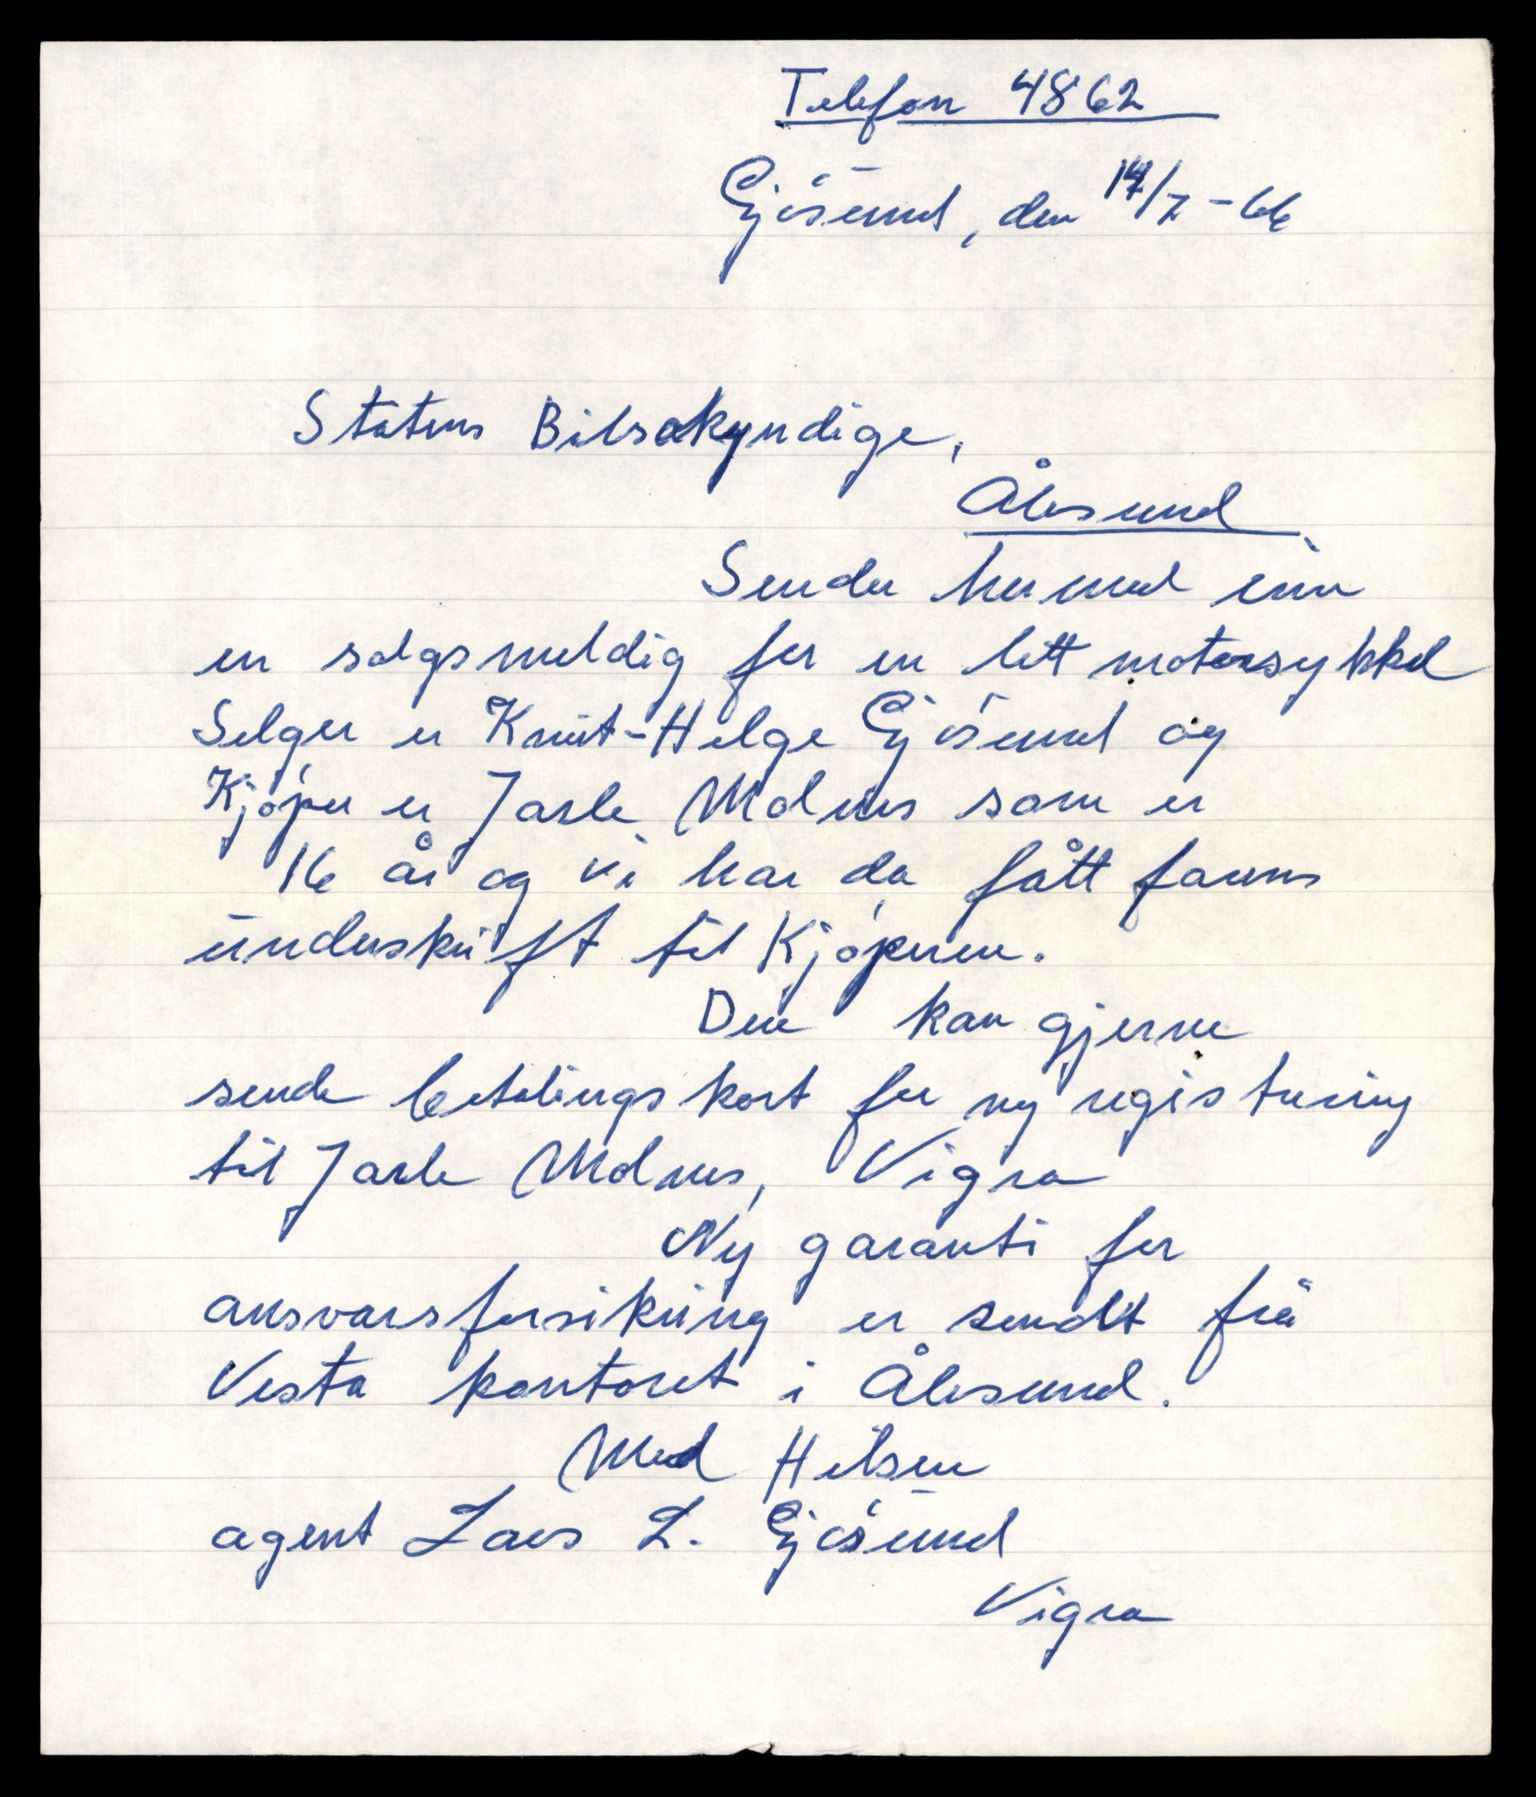 Telefon 4862
Gjøsund, den 14/7-66
Statens Bilsakyndige,
Ålesund
Sender hermed inn
en salgsmeldig for en lett motorsykkel
Selger er Knut-Helge Gjøsund og
Kjøper er Jarle Molnes som er
16 år og vi har da fått farens
underskrift til Kjøperen.
Den kan gjerne
sende betalingskort for ny registrering
til Jarle Molnes, Vigra
Ny garanti for
ansvarsforsikring er sendt frå
Vesta kontoret i Ålesund.
Med Hilsen
agent Lars L. Gjøsund
Vigra